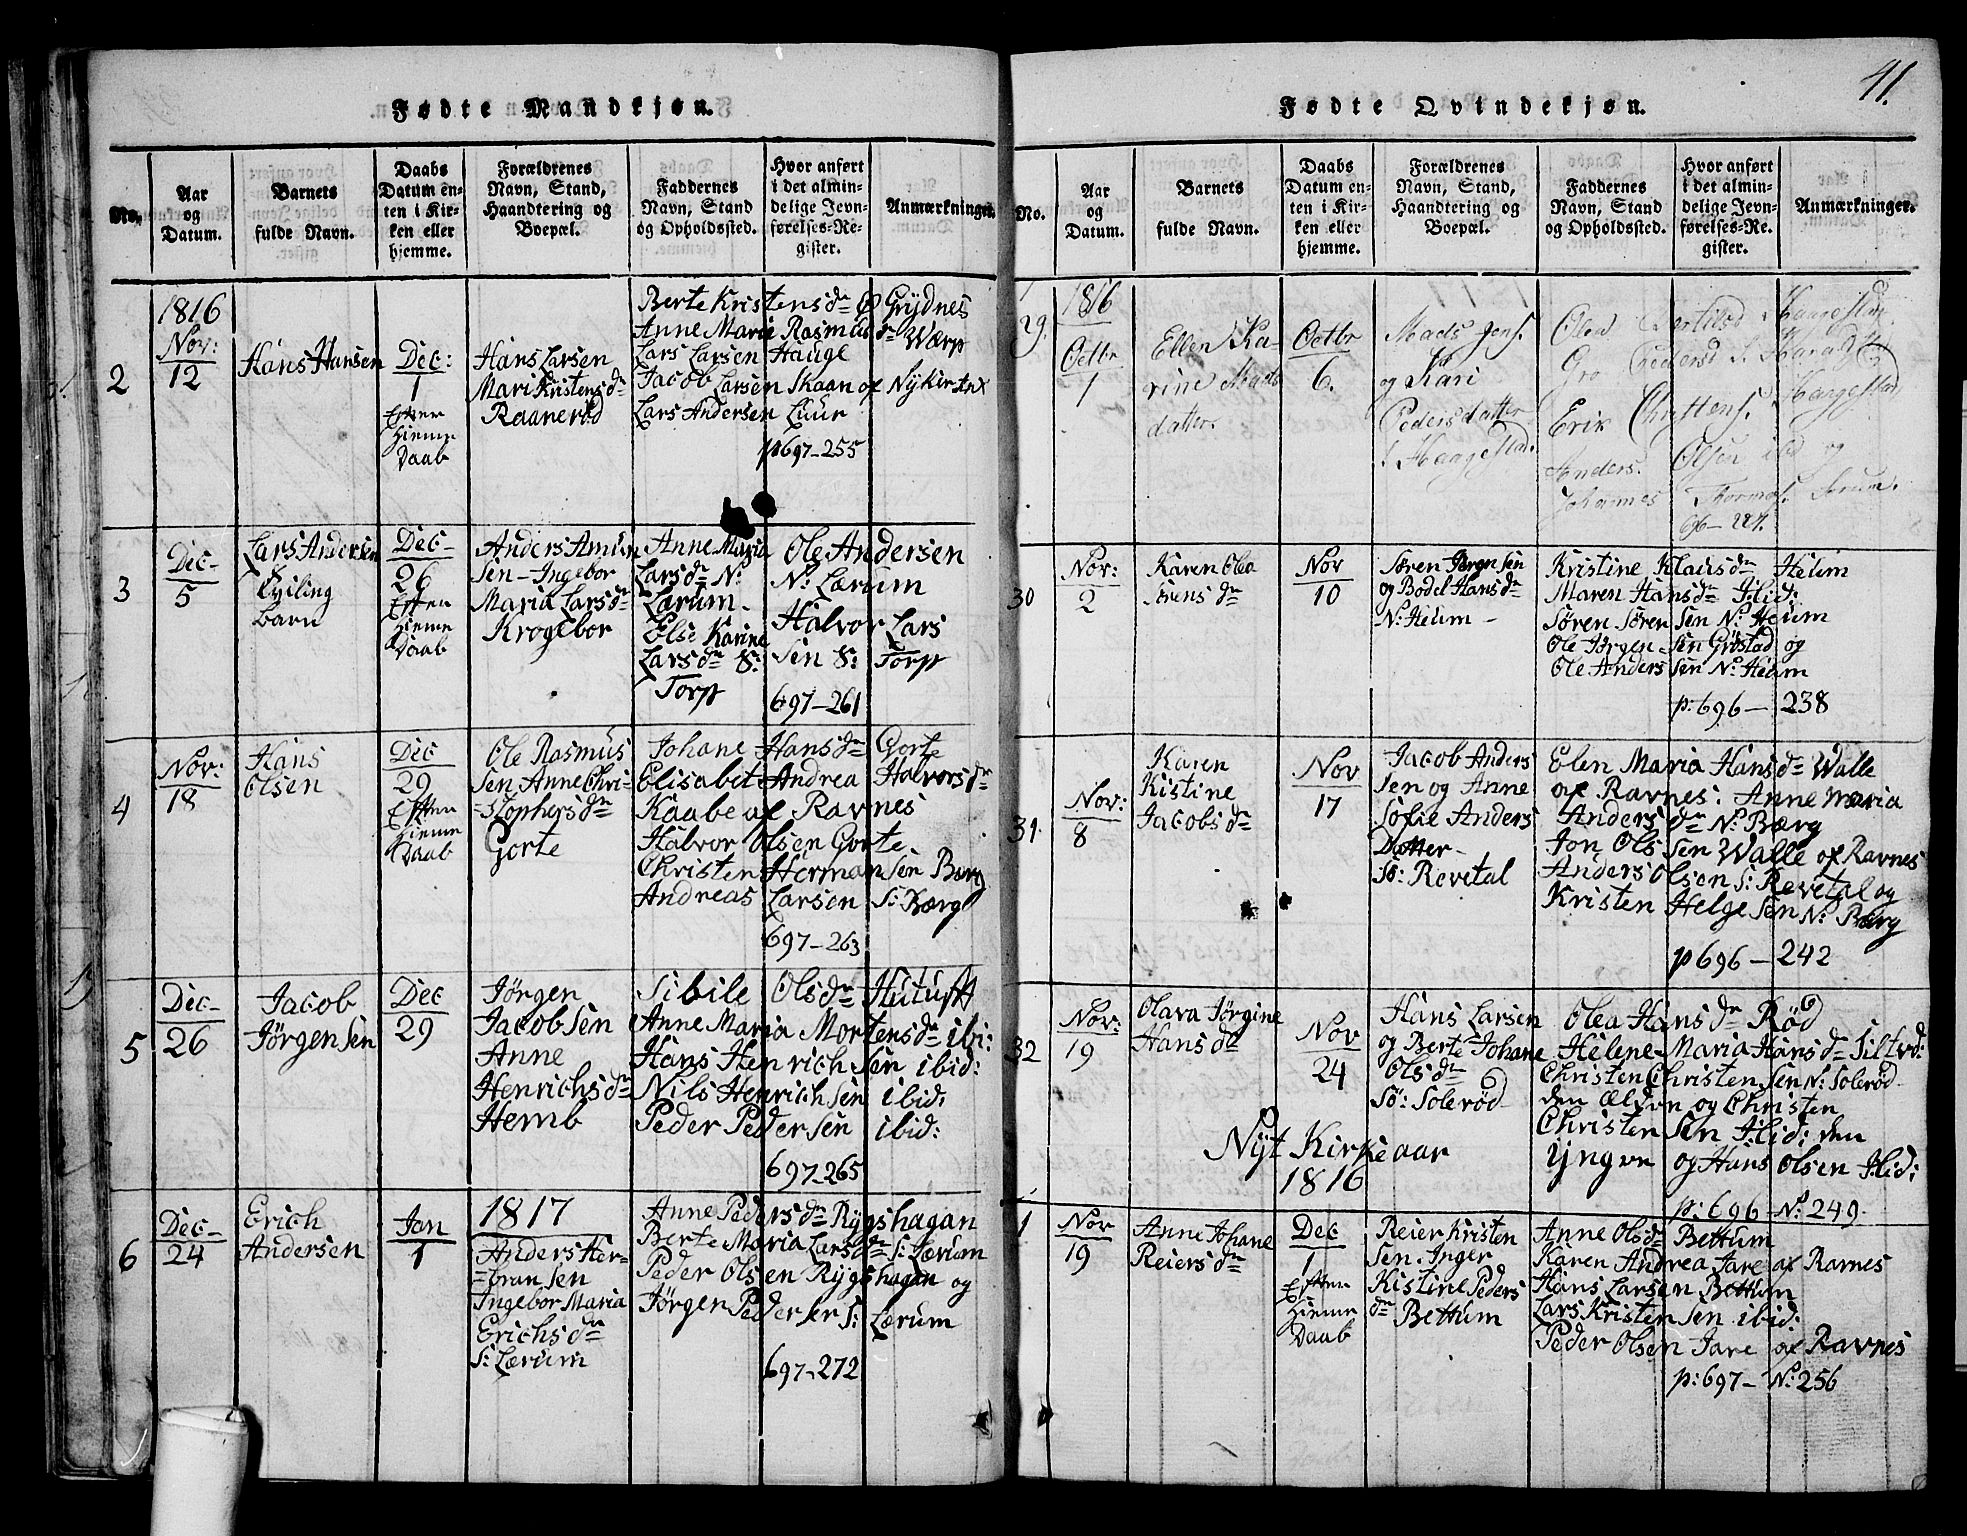 41.
Fødte Mandkjøn.
No.
Aar og Datum.
Barnets fulde Navn.
Daabs Datum enten i Kirken eller hjemme.
Forældrenes Navn, Stand, Haandtering og Boepæl.
Faddernes Navn, Stand og Opholdssted.
Hvor anført i det almindelige Jevnførelses-Register.
Anmærkninger.
2
1816
Nov:
12
Hans Hansen
Dec:
1
Efter
Hieme
Daab
Hans Larsen
Mari Kristensdr
Raanerød
Berte Kristensdr Grydnes
Anne Maria Rasmusdr Wærp
Lars Larsen Hauge
Jacob Larsen Skaan af Nykirke
Lars Andersen Luur
p697-255
3
Dec-
5
Lars Andersen
Tviling
Barn
Dec-
26
Efter
Hieme
Daab
Anders Amun
sen-Ingebor
Maria Larsdr
Krogebor
Anne Maria
Larsdr N:
Lærum-
Else Karine
Larsdr S:
Torp
Ole Andersen
N: Lærum
Halvor Lars
sen S: Torp
697-261
4
Nov:
18
Hans
Olsen
Dec
29
Efter
Hieme
Daab
Ole Rasmus
sen Anne Chri-
-stophersdr
Gorte
Johane Hansdr Gorte
Elisabet Andrea Halvorsdr
Kaabe af Ravnes
Halvor Olsen Gorte
Christen Hermansen Berg
Andreas Larsen S: Bærg
697-263
5
Dec-
26
Jacob
Jørgensen
Dec
29
Jørgen
Jacobsen
Anne
Henrichsdr
Hemb
Sibile Olsdr Hutuft
Anne Maria Mortensdr ibi:
Hans Henrichsen ibid:
Nils Henrichsen ibid:
Peder Pedersen ibid:
697-265
6
Dec-
24
Erich
Andersen
Jan
1
1817
Anders Her-
=bransen
Ingebor Maria
Erichsdr
S: Lærum
Anne Pedersdr Rygshagan
Berte Maria Larsdr S: Lærum
Peder Olsen Rygshagan og
Jørgen Pederser S: Lærum
697-272
Fødte Qvindekjøn.
No.
Aar og Datum.
Barnets fulde Navn.
Daabs Datum enten i Kirken eller hjemme.
Forældrenes Navn, Stand, Haandtering og Boepæl.
Faddernes Navn, Stand og Opholdssted.
Hvor anført i det almindelige Jevnførelses-Register.
Anmærkninger.
29.
1816
Octbr
1
Ellen Ka-
rine Mads
datter
Octbr
6.
Mads Jens.
og Kari
Pedersdatter
Haagestad.
Olea Bertilsd Haagestad
Gro Pedersd
Erik Christens. Haagestad
Anders Olsen ibd og
Johannes Thomas.
696-227.
30
Nov:
2
Karen Olea
Sørensdr
Nov
10
Søren Jørgensen
og Bodel Hansdr
N: Heum-
Kristine Klausdr Heum
Maren Hansdr Ibid:
Søren Sørensen N: Heum
Ole Jørgensen Grøstad og
Ole Anderssen N: Heum
p:696-238
31.
Nov:
8
Karen
Kistine
Jacobsdr
Nov
17
Jacob Anders
sen og Anne
Sofie Anders
Datter-
Sø: Revetal
Elen Maria Hansdr Walle
af Ravnes: Anne Maria
Andersdr N: Bærg
Jon Olssen Walle af Ravnes
Anders Olsen S: Revetal og
Kristen Helgesen N: Bærg
p696-242
32
Nov:
19
Olava Jørgine
Hansdr
Nov
24
Hans Larsen
og Berte Johane
Olsdr
Sø: Solerød
Olea Hansdr Rød
Helene Maria Hansdr
Christen Christensen N: Solerød
den Ældre og Christen
Christensen Ibid: den
yngre og Hans Olsen Ibid:
p:696-N: 249.
Nyt Kirkeaar
1816
1
Nov
19
Anne Johane
Reiersdr
Dec
1
Efter
Hieme
Daab
Reier Kristen
sen. Inger
Kistine Peders
dr Bettum
Anne Olsdr Bettum
Karen Andrea Jare af Ravnes
Hans Larsen Bettum
Lars Kristensen ibid:
Peder Olsen Jare af Ravnes
p:697-N: 256